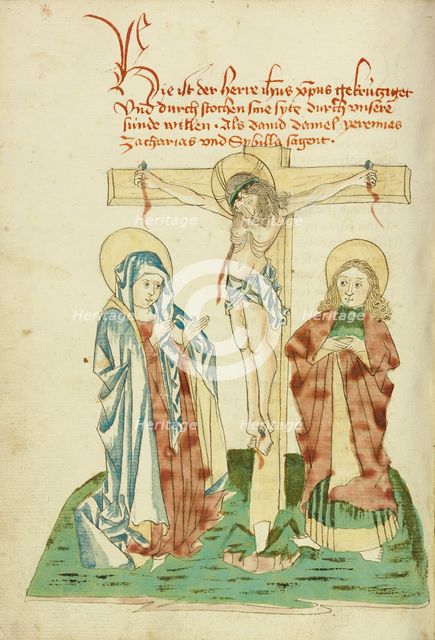 Hie ist der herre ihus xpus gekrúcziget
Vnd durch stochen sine syte durch vnsere
súnde willen · Als dauid daniel yeremias
Zacharias vnd Sybilla sagent ·
Heritage
Heritage
Heritage
Heritage
Heritage
Heritage
Heritage
Heritage